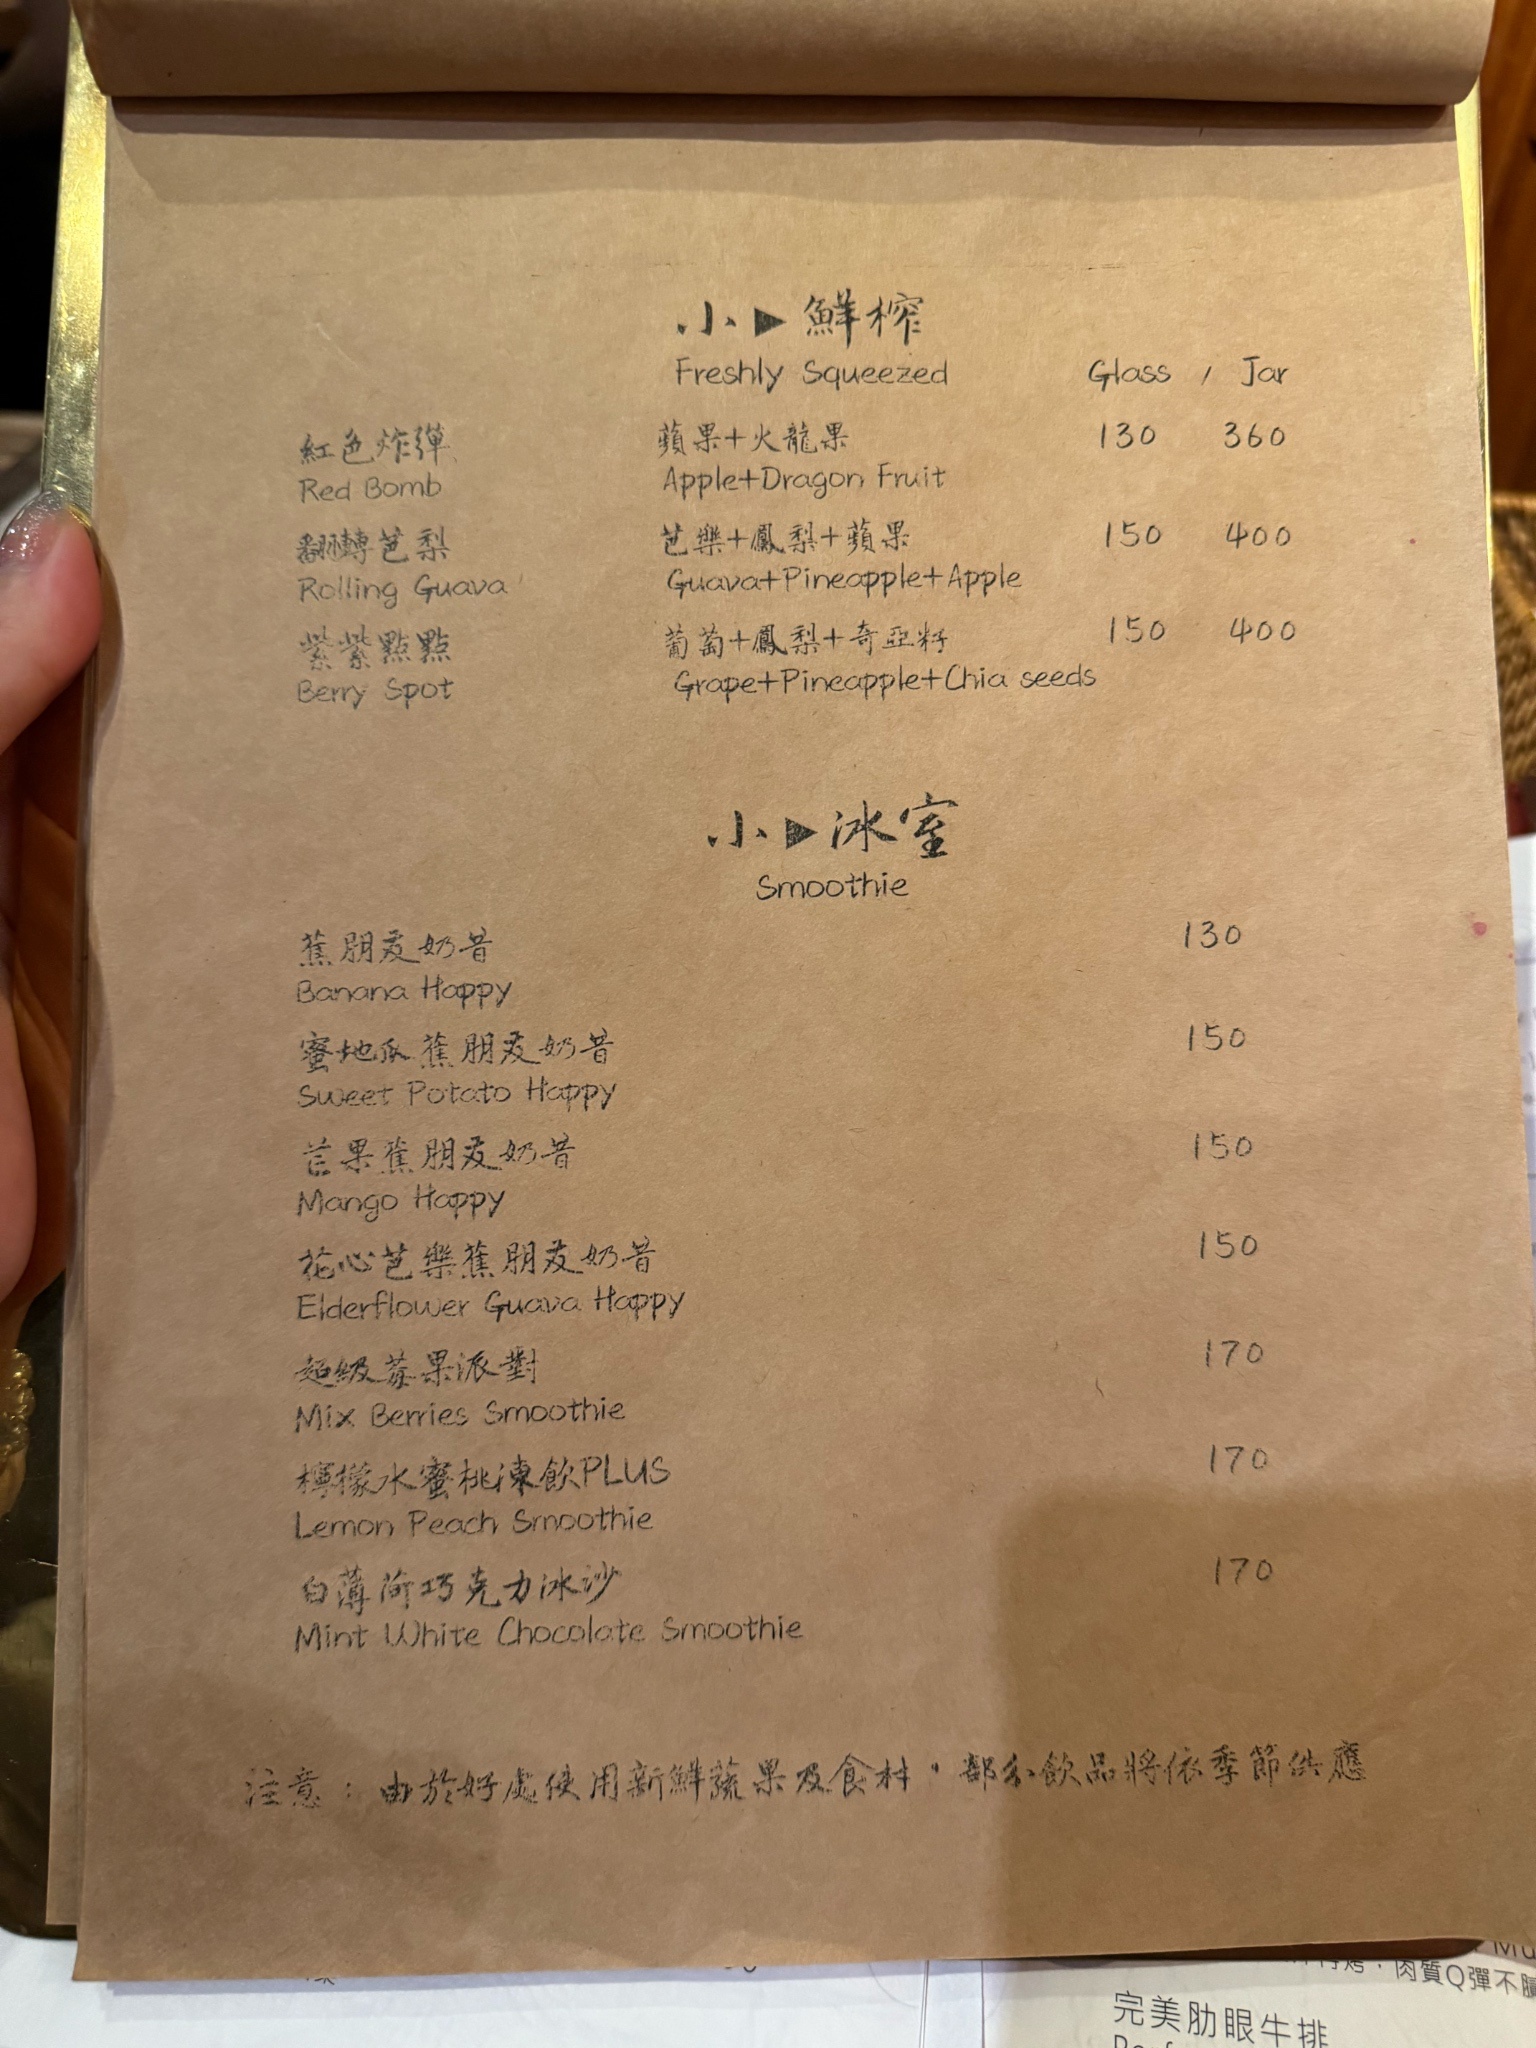 小▶鮮榨
Freshly Squeezed Glass / Jar
紅色炸彈 蘋果+火龍果 130 360
Red Bomb Apple+Dragon Fruit
翻轉芭梨 芭樂+鳳梨+蘋果 150 400
Rolling Guava Guava+Pineapple+Apple
紫紫點點 葡萄+鳳梨+奇亞籽 150 400
Berry Spot Grape+Pineapple+Chia seeds
小▶冰室
Smoothie
蕉朋友奶昔 130
Banana Happy
蜜地瓜蕉朋友奶昔 150
Sweet Potato Happy
芒果蕉朋友奶昔 150
Mango Happy
花心芭樂蕉朋友奶昔 150
Elderflower Guava Happy
超級莓果派對 170
Mix Berries Smoothie
檸檬水蜜桃凍飲PLUS 170
Lemon Peach Smoothie
白薄荷巧克力冰沙 170
Mint White Chocolate Smoothie
注意：由於好處使用新鮮蔬果及食材，部分飲品將依季節供應
肉質Q彈不
完美肋眼牛排